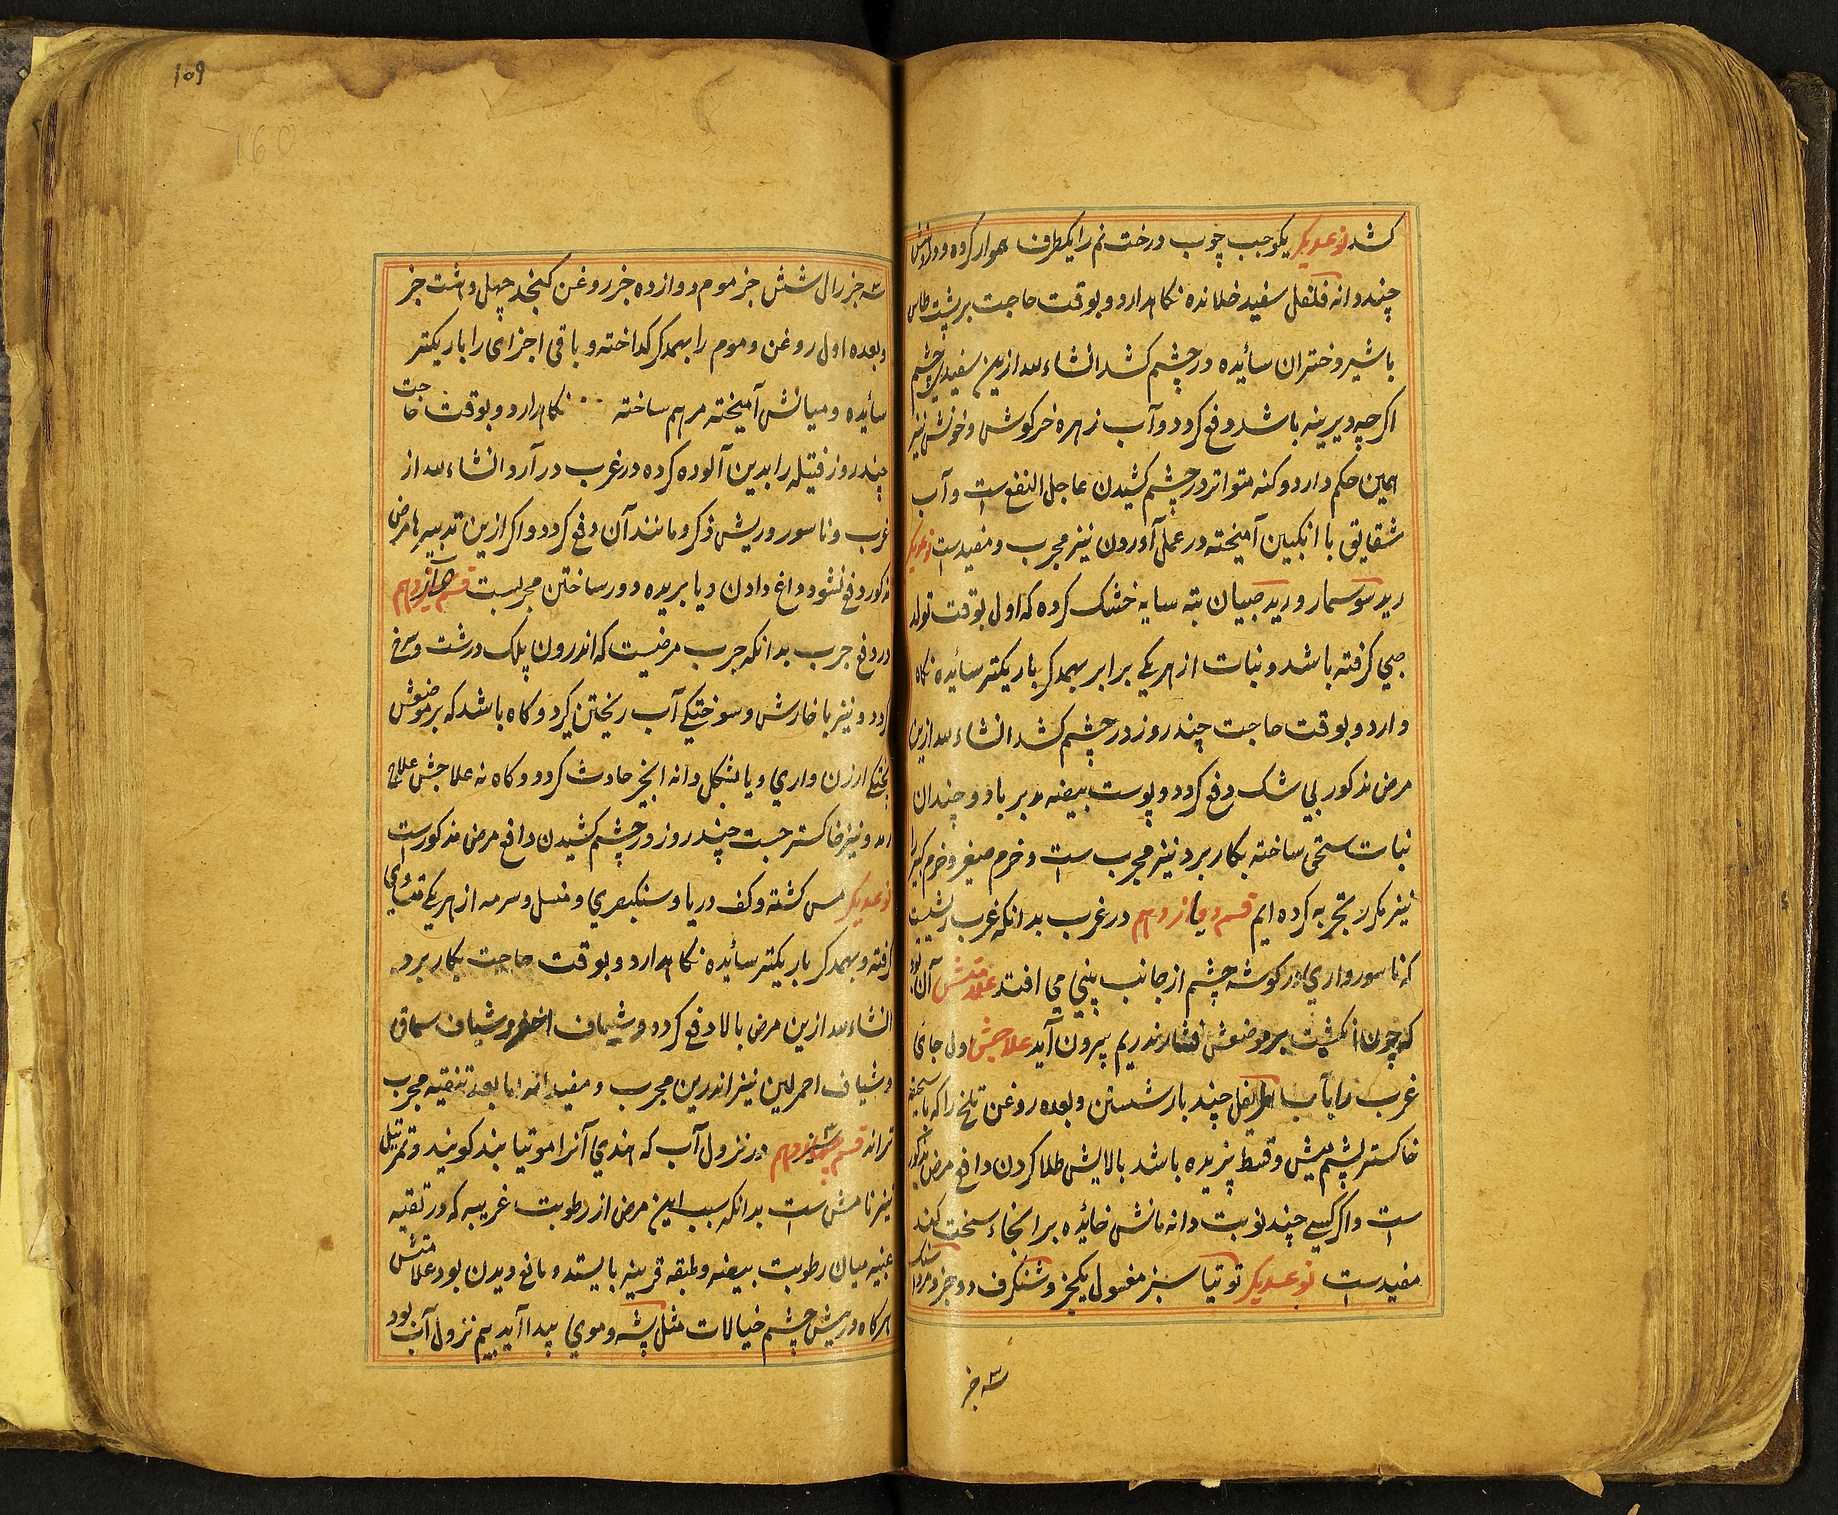 کشد نوعدیکر یکوجب چوب درخت نم را یکطرف هموار کرده و درانش
چند دانه فلفل سفید خلانده نکاهدارد و بوقت حاجت بر پشت طاس
با شیر دختران سائیده در چشم کشد انشاءلله ازین سفیدی چشم
اکرچه دیرینه باشد دفع کردد و آب زهره خرکوش و خونش نیز
همین حکم دارد و کنه متواتر در چشم کشیدن عاجل النفع است و آب
شقایق با انکبین آمیخته در عمل آوردن نیز مجرب و مفیدست نوعدیکر
رید سوسمار و رید صبیان بته سایه خشک کرده که اول بوقت تولد
صبی کرفته باشد و نبات از هر یکے برابر بهمدکر باریکتر سائیده نکاه
دارد و بوقت حاجت چند روز در چشم کشد انشاءلله ازین
مرض مذکور بی شک دفع کردد و پوست بیضه مدبر باد و چندان
نبات سحقی ساخته بکار برد نیز مجرب است و خرم صغیر و خرم کبیر را
نیز مکرر تجربه کرده ایم قسم دوازدهم در غرب بدانکه غرب ریشیست
که ناسور واری در کوشه چشم از جانب بینی می افتد علامتش آن بود
که چون انکشت بر موضعش فشارند ریم بیرون آید علاجش اول جای
غرب را بآب اطریفل چند بار شستن و بعده روغن تلخ را که با سحیقه
خاکستر پشم میش و قسط پزیده باشد بالایش طلا کردن دافع مرض مذکور
است و اکر کسی چند نوبت دانه مانش خائیده برانجاء سخت کند
مفیدست نوعدیکر توتیا سبز مغسول یکجز و شنکرف دو جز و مردا سنک
سه جز
109
160
سه جز رال شش جز موم دوازده جز روغن کنجد چهل و هشت جز
و بعده اول روغن و موم را بهمدکر کداخته و باقی اجزای را باریکتر
سائیده و میانش آمیخته مرهم ساخته نکاهدارد و بوقت حاجت
چند روز فتیله را بدین آلوده کرده در غرب در آرد انشاءلله از
غرب و ناسور و ریش ذکر و مانند آن دفع کردد و اکر ازین تدبیرها مرض
مذکور دفع نشود داغ دادن و یا بریده دور ساختن مجربست قسم
در دفع جرب بدانکه جرب مرضیست که اندرون پلک درشت و سرخ
کردد و نیز با خارش و سوختکی آب ریختن کیرد و کاه باشد که بر موضعش
پختکے ارزن واری و یا بشکل دانه انجیر حادث کردد و کاه نه علاجش علاج
رمد و نیز خاکستر جست چند روز در چشم کشیدن دافع مرض مذکورست
نوعدیکر مس کشته و کف دریا و سنکبصری و منسل و سرمه از هر یکے متساوی
کرفته و بهمدکر باریکتر سائیده نکاهدارد و بوقت حاجت بکار برد
انشاءلله ازین مرض بالا دفع کردد و شیاف اخضر و شیاف سماق
و شیاف احمر لین نیز اندرین مجرب و مفیداند اما بعد تنقیه مجرب
تراند قسم در نزول آب که هندی آنرا موتیا بند کویند و تمرتیل
نیز نامش است بدانکه سبب این مرض از رطوبت غریبه که در ثقبه
عنبیه میان رطوبت بیضه و طبقه قرینه بایستد و مانع دیدن بود علامتش
هرکاه در پیش چشم خیالات مثل پشه و موی پیدا آید بیم نزول آب بود